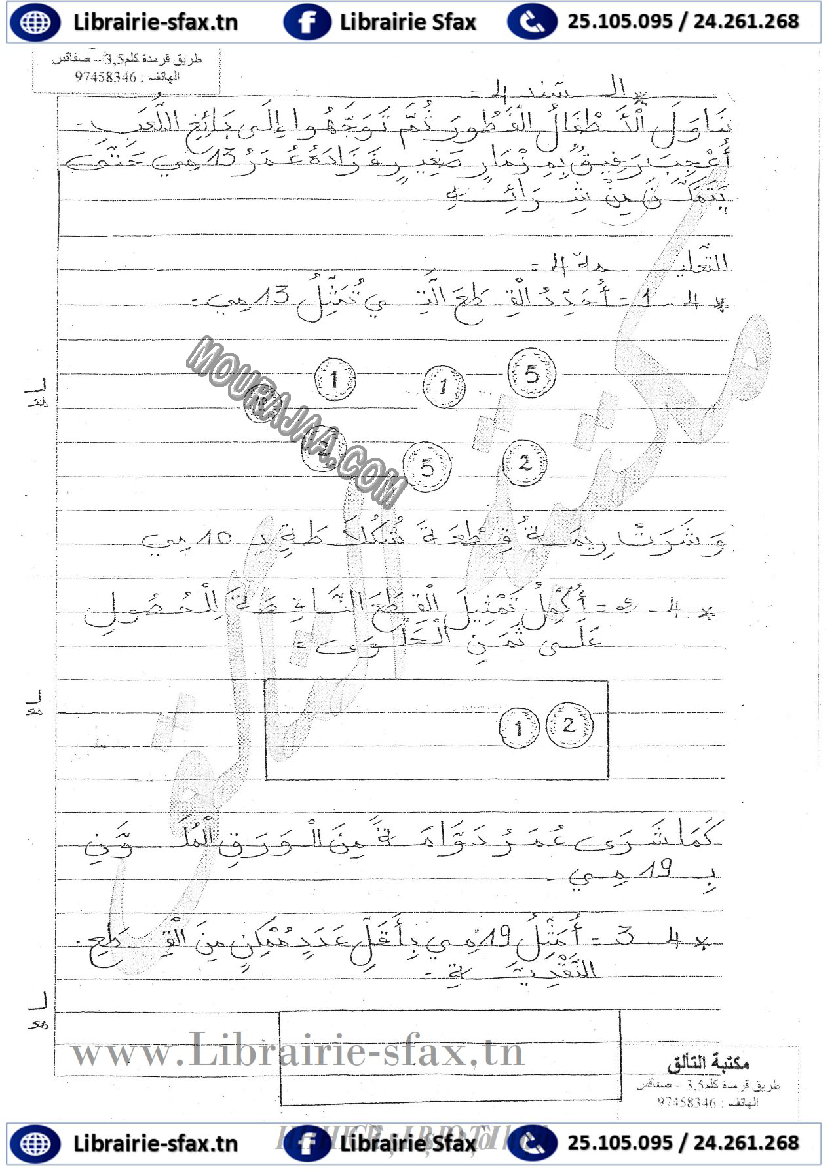 Librairie-sfax.tn Librairie Sfax 25.105.095 / 24.261.268
طريق قرمدة كلم3,5 – صفاقس
الهاتف : 97458346
* السند 4 =
تناول الْأَطْفَالُ الْفَطُورَ ثُمَّ تَوَجَّهُوا إِلَى بَائِعِ اللُّعَبِ.
أُعْجِبَ رَفِيقٌ بِمِزْمَارٍ صَغِيرٍ فَزَادَهُ عُمَرُ 13 مِي حَتَّى
يَتَمَكَّنَ مِنْ شِرَائِهِ
التعليمة 4 =
* 4 - 1 = أُحَدِّدُ الْقِطَعَ الَّتِي تُمَثِّلُ 13 مِي.
1 1 5
5 2
MOURAJAA.COM
وَ شَرَتْ رِيمَةُ قِطْعَةَ شُكُلَاطَةٍ بِـ 10 مِي
* 4 - 2 = أُكْمِلُ تَمْثِيلَ الْقِطَعِ النَّاقِصَةِ لِلْحُصُولِ
عَلَى ثَمَنِ الْحَلْوَى =
1 2
كَمَا شَرَى عُمَرُ دَوَّامَةً مِنَ الْوَرَقِ الْمُلَوَّنِ
بِـ 19 مِي.
* 4 - 3 = أُمَثِّلُ 19 مِي بِأَقَلِّ عَدَدٍ مُمْكِنٍ مِنَ الْقِطَعِ
النَّقْدِيَّةِ.
www.Librairie-sfax.tn
مكتبة التألق
طريق قرمدة كلم3,5 – صفاقس
الهاتف : 97458346
Librairie-sfax.tn Librairie Sfax 25.105.095 / 24.261.268